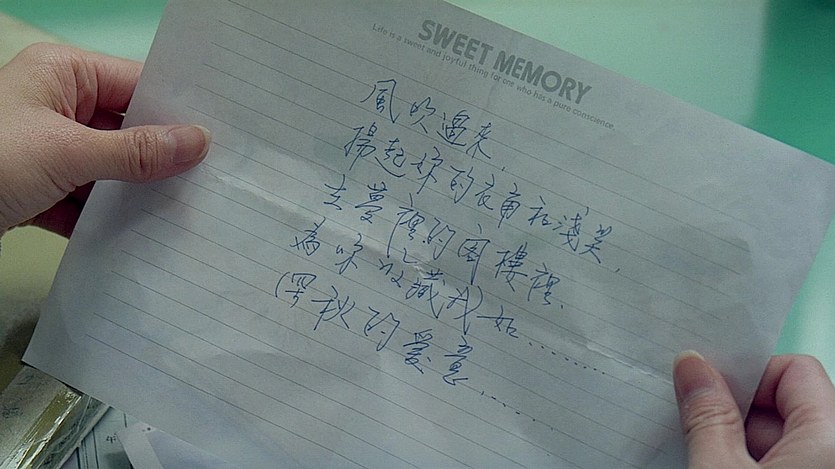 SWEET MEMORY
Life is a sweet and joyful thing for one who has a pure conscience.
風吹過來,
揚起妳的衣角和淺笑,
在夢裡的閣樓裡,
為妳收藏我如............
(深秋的愛意............